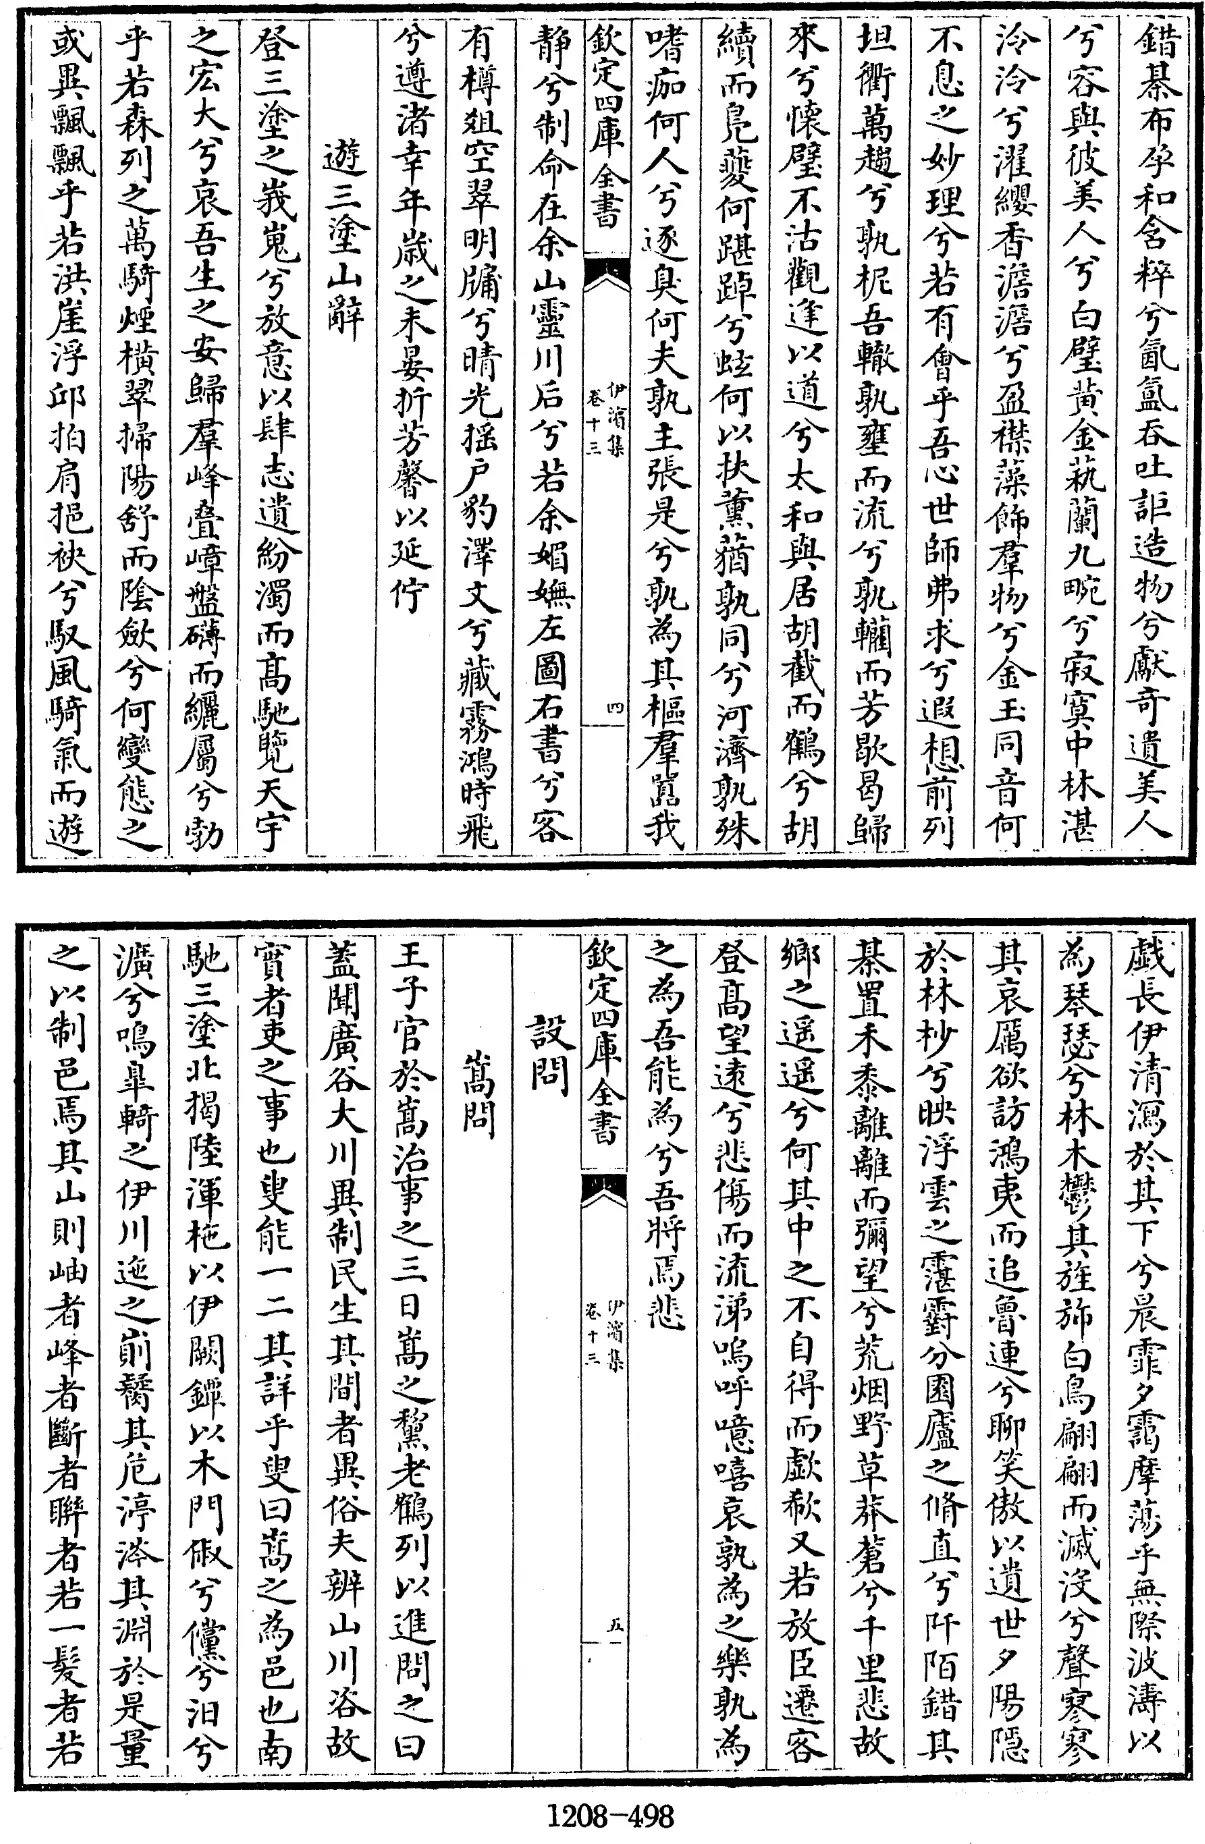 錯綦布孕和含粹兮氤氲吞吐詎造物兮獻奇遺美人
兮容與彼美人兮白璧黄金蓺蘭九畹兮寂寞中林湛
泠泠兮濯纓香澹澹兮盈襟藻飾羣物兮金玉同音何
不息之妙理兮若有會乎吾心世師弗求兮遐想前列
坦衢萬趨兮孰柅吾轍孰壅而流兮孰轥而芳歇曷歸
來兮懷璧不沽觀逢以道兮太和與居胡截而鶴兮胡
續而鳬夔何踸踔兮蚿何以扶薰蕕孰同兮河濟孰殊
嗜痂何人兮逐臭何夫孰主張是兮孰為其樞羣嚚我
欽定四庫全書 伊濱集 卷十三 四
静兮制命在余山靈川后兮若余媚嫵左圖右書兮客
有樽俎空翠明牗兮晴光揺户豹澤文兮藏霧鴻時飛
兮遵渚幸年嵗之未晏折芳馨以延佇
遊三塗山辭
登三塗之峩嵬兮放意以肆志遺紛濁而髙馳覽天宇
之宏大兮哀吾生之安歸羣峰叠嶂盤礴而纚屬兮勃
乎若森列之萬騎煙横翠掃陽舒而陰歛兮何變態之
或異飄飄乎若洪崖浮邱拍肩挹袂兮馭風騎氣而遊
戯長伊清瀉於其下兮晨霏夕靄摩蕩乎無際波濤以
為琴瑟兮林木鬱其旌斾白鳥翩翩而滅没兮聲寥寥
其哀厲欲訪鴻夷而追魯連兮聊笑傲以遺世夕陽隠
於林杪兮映浮雲之霮䨴分園廬之脩直兮阡陌錯其
綦置禾黍離離而彌望兮荒烟野草莽蒼兮千里悲故
鄉之遥遥兮何其中之不自得而歔欷又若放臣遷客
登髙望逺兮悲傷而流涕嗚呼噫嘻哀孰為之樂孰為
之為吾能為兮吾將焉悲
欽定四庫全書 伊濱集 卷十三 五
設問
嵩問
王子官於嵩治事之三日嵩之黧老鶴列以進問之曰
蓋聞廣谷大川異制民生其間者異俗夫辨山川咨故
實者吏之事也叟能一二其詳乎叟曰嵩之為邑也南
馳三塗北揭陸渾柂以伊闕鐔以木門俶兮儻兮汨兮
濆兮鳴臯輢之伊川迤之崱屴其危渟滀其淵於是量
之以制邑焉其山則岫者峰者斷者聨者若一髪者若
1208-498